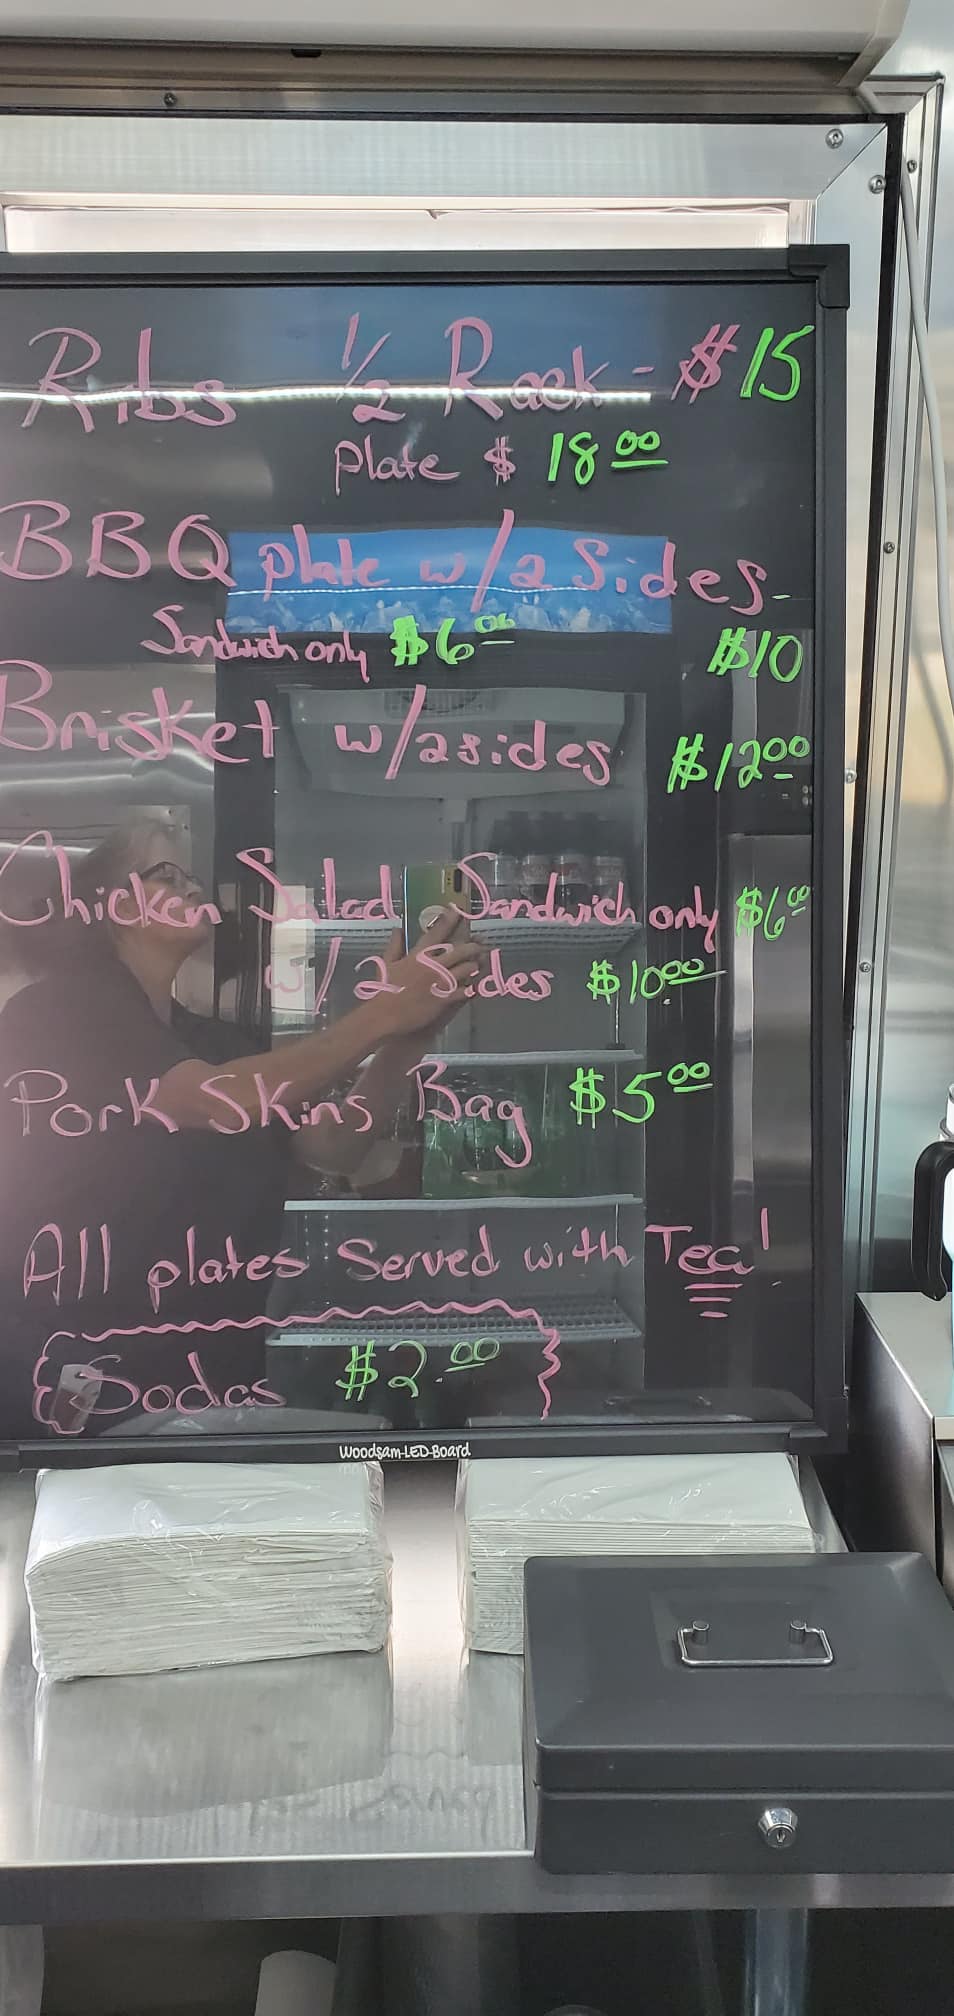 Ribs ½ Rack - $15
plate $ 18.00
BBQ plate w/2 Sides -
Sandwich only $6.00 $10
Brisket w/2 sides $12.00
Chicken Salad Sandwich only $6.00
w/ 2 Sides $10.00
Pork Skins Bag $5.00
All plates Served with Tea!
{Sodas $2.00}
Woodsam-LED-Board